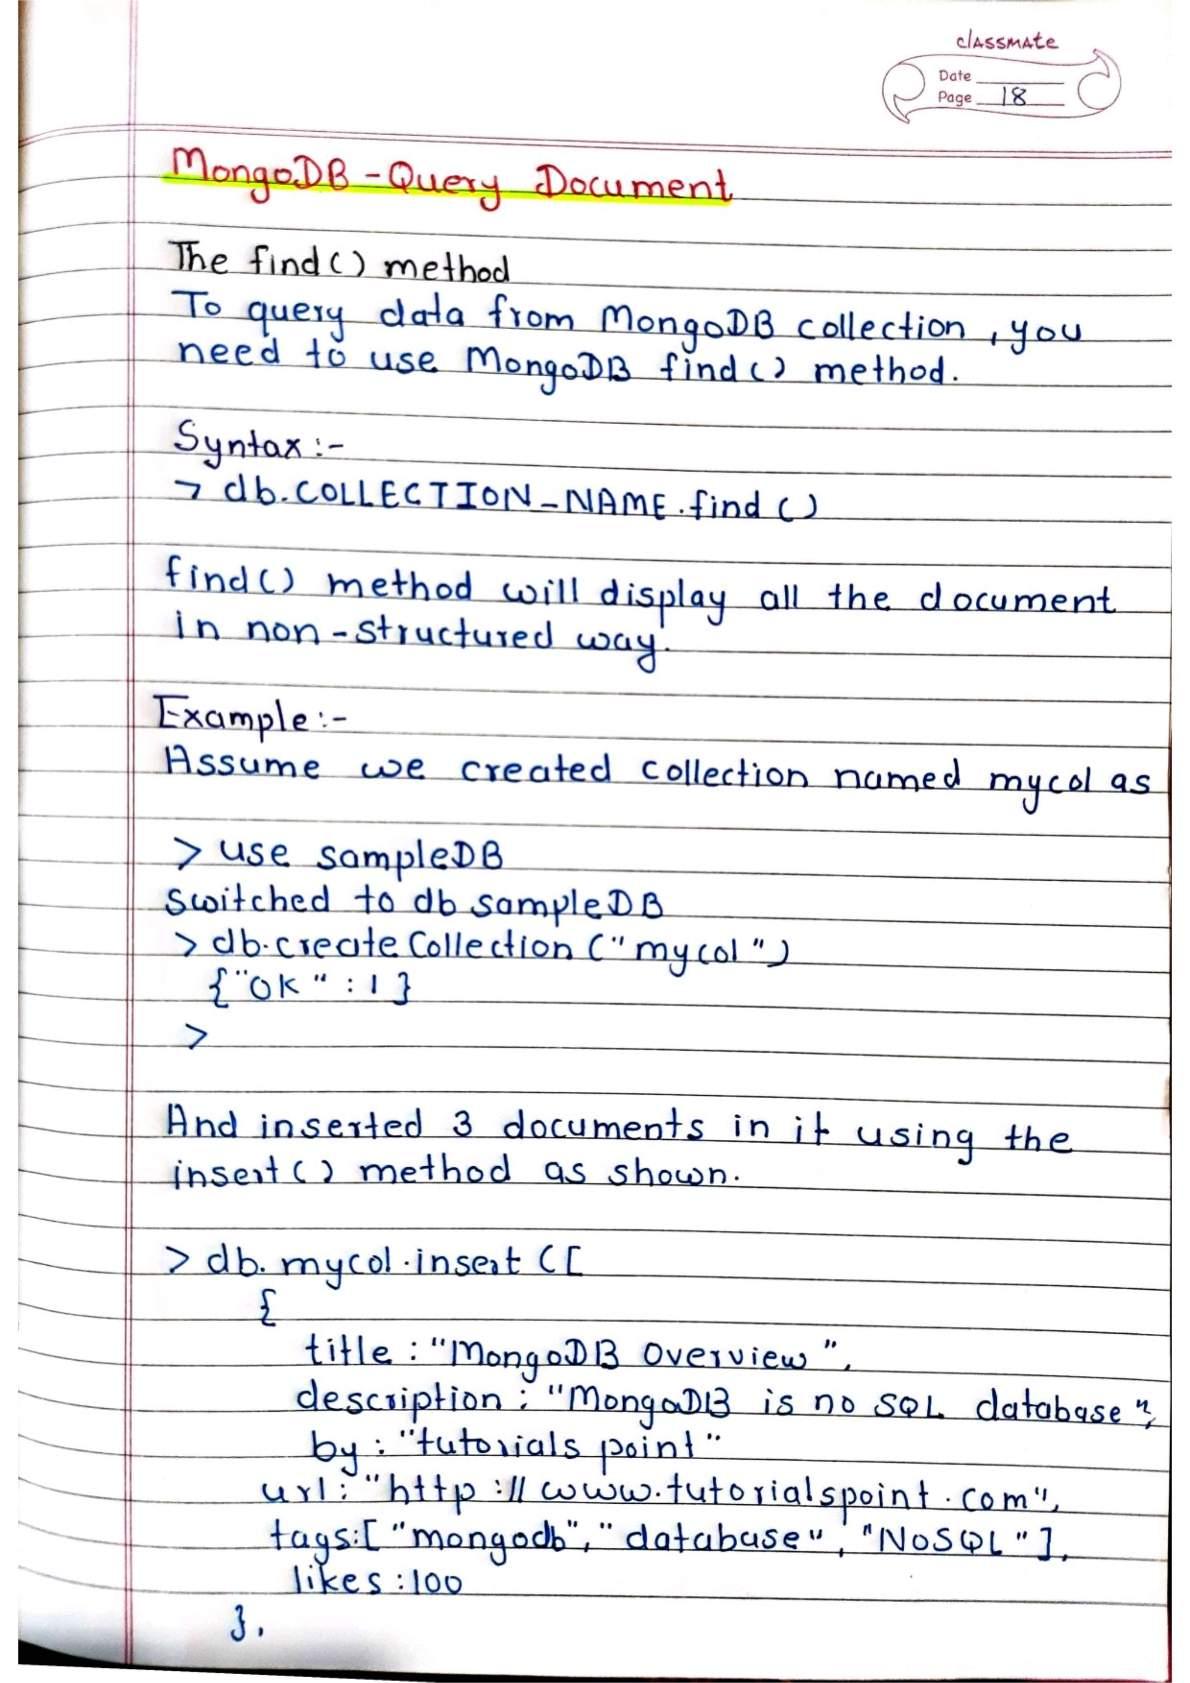 classmate
Date
Page 18
MongoDB - Query Document
The find() method
To query data from MongoDB collection, you
need to use MongoDB find() method.
Syntax :-
> db.COLLECTION_NAME.find()
find() method will display all the document
in non-structured way.
Example :-
Assume we created collection named mycol as
> use sampleDB
switched to db sampleDB
> db.createCollection("mycol")
{"OK" : 1}
>
And inserted 3 documents in it using the
insert() method as shown.
> db.mycol.insert([
{
title : "MongoDB Overview",
description : "MongoDB is no SQL database",
by : "tutorials point"
url : "http://www.tutorialspoint.com",
tags:["mongodb", "database", "NoSQL"],
likes :100
},